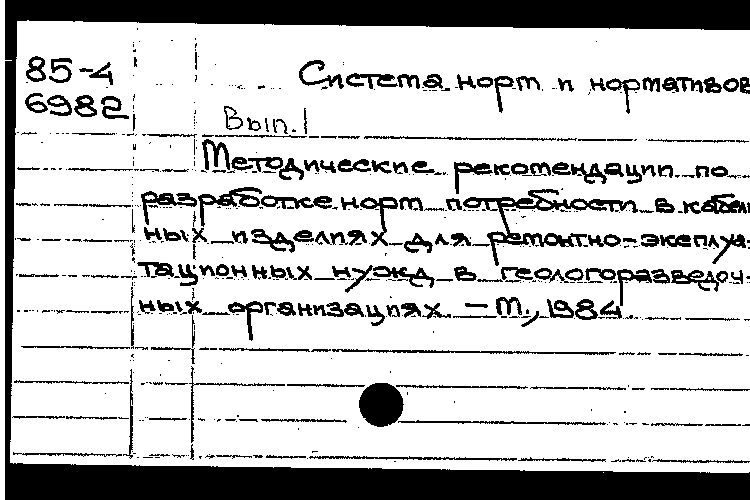 85-4
6982
Система норм и нормативов
Вып.1
Методические рекомендации по
разработке норм потребности в кабель-
ных изделиях для ремонтно-эксплуа-
тационных нужд в геологоразведоч-
ных организациях. — М., 1984.